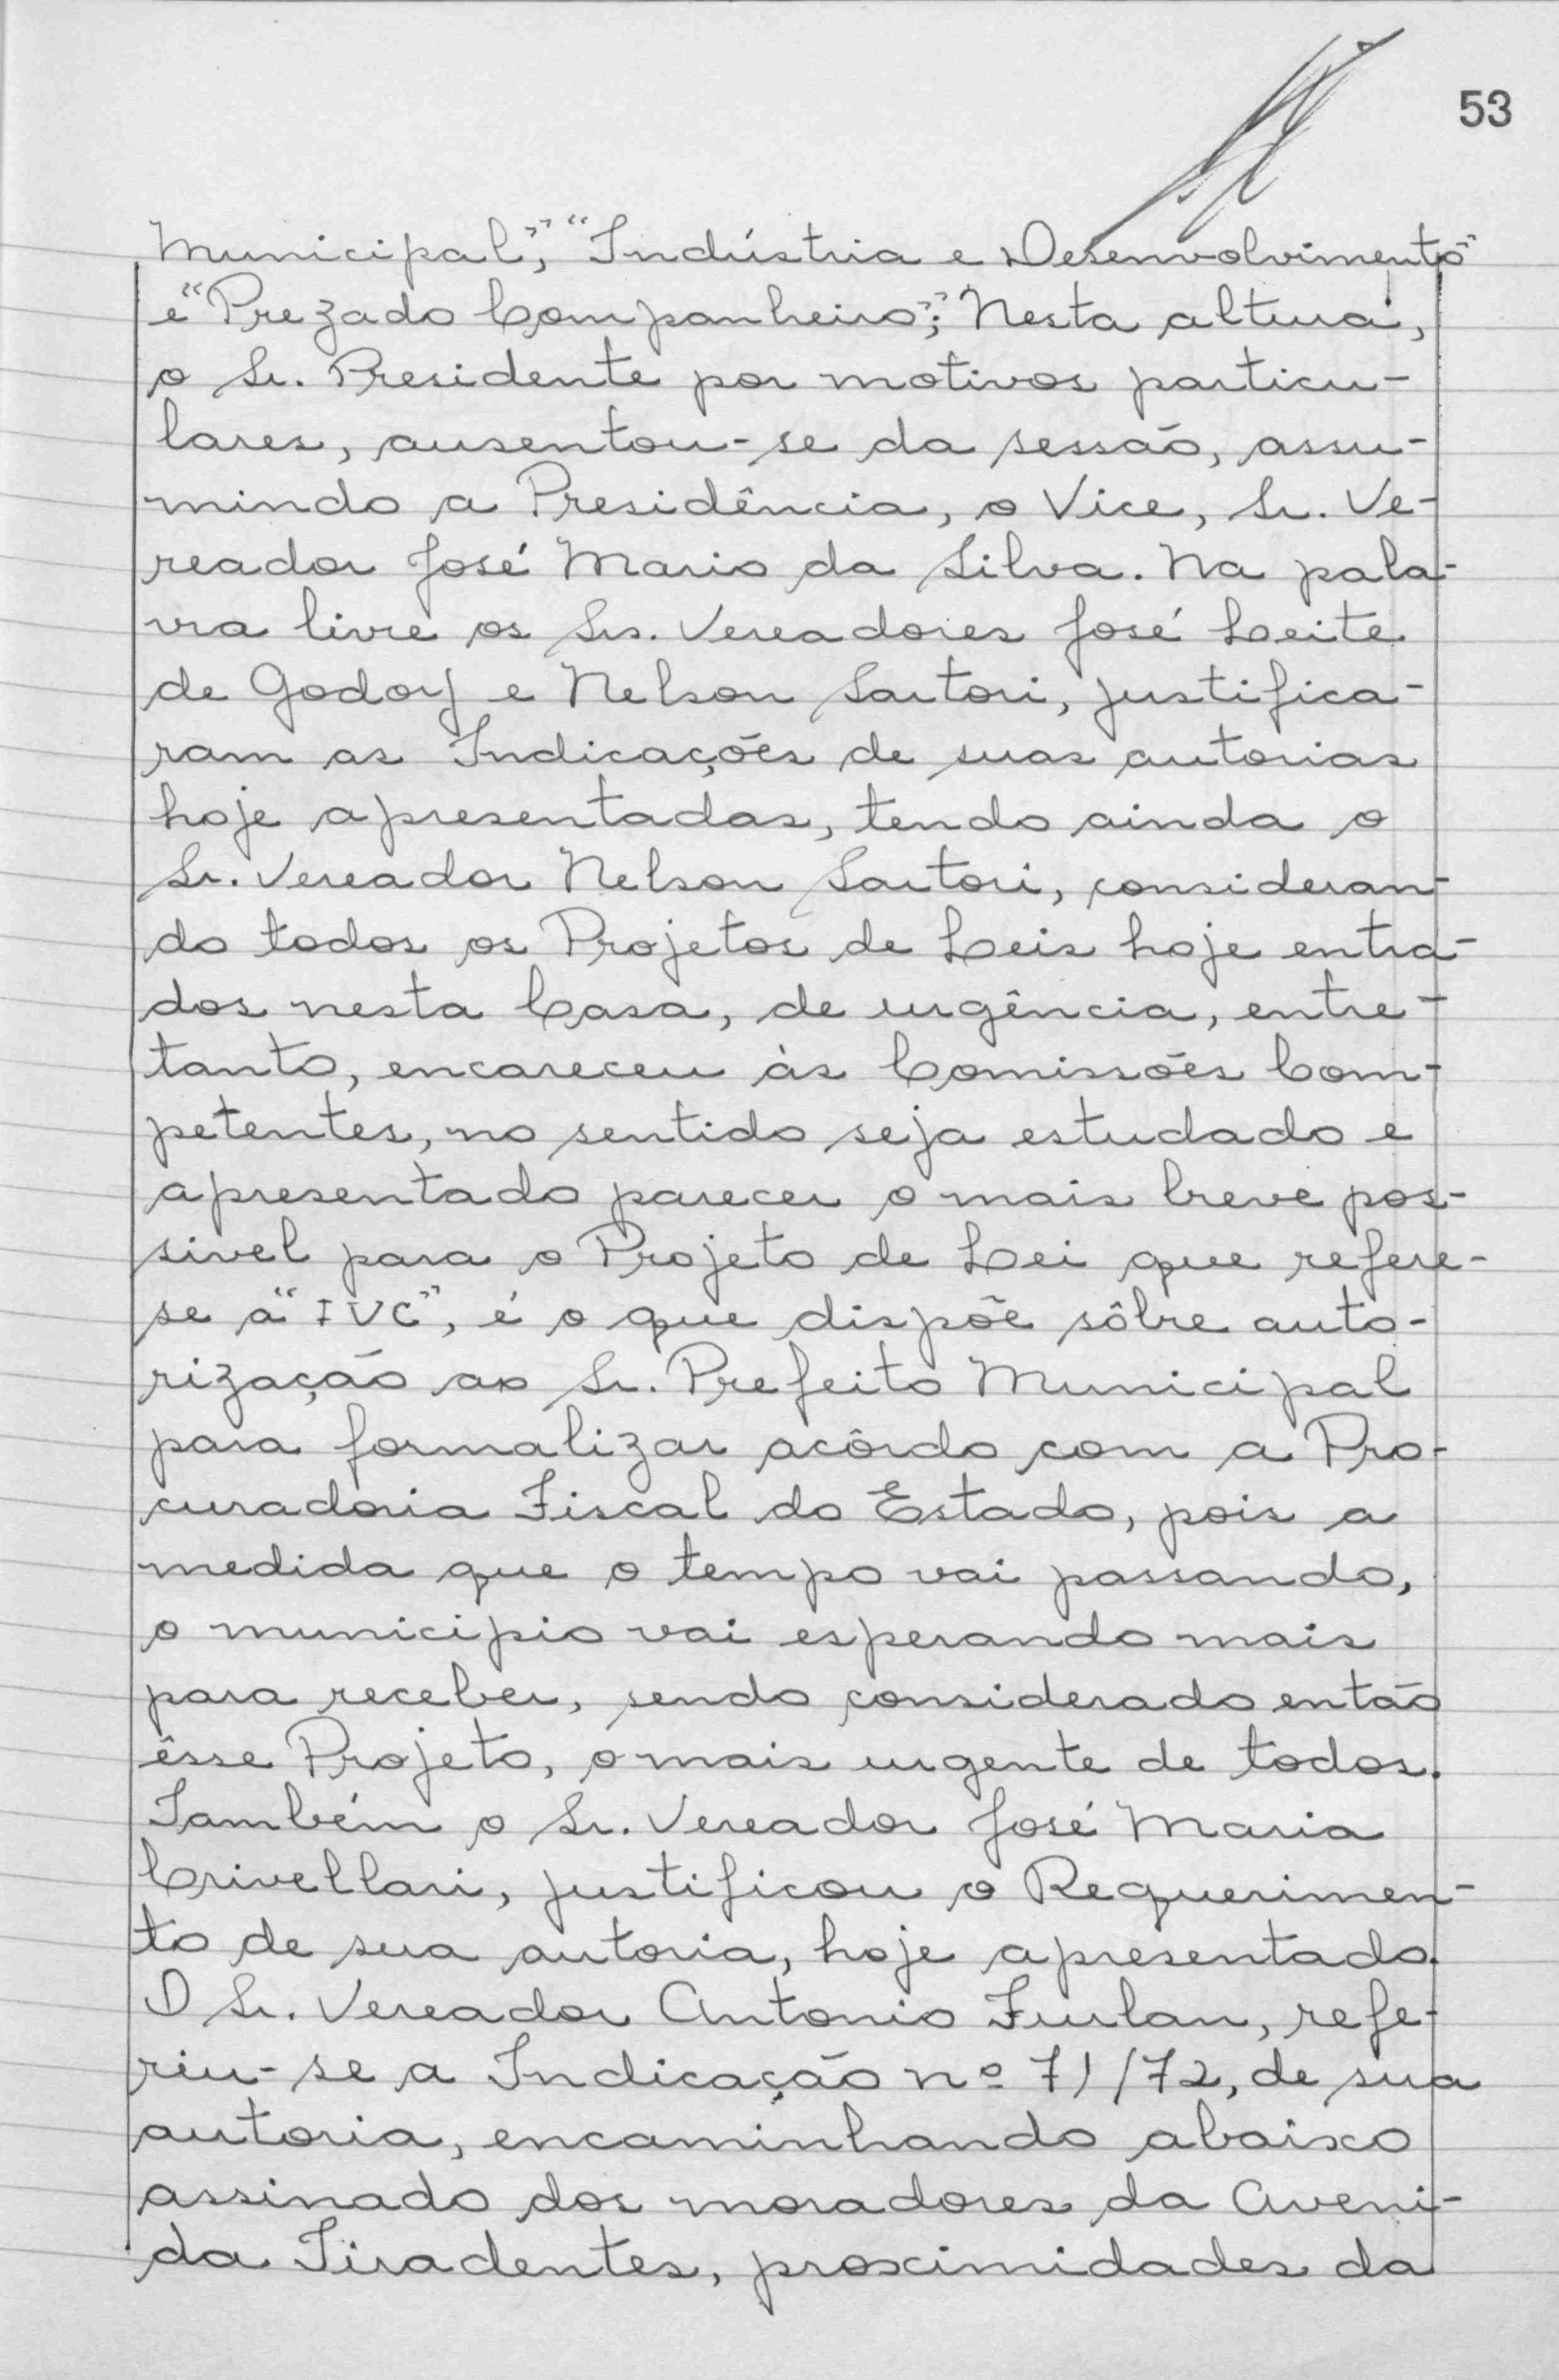 53
Municipal", "Indústria e Desenvolvimento"
e "Prezado Companheiro"; Nesta altura,
o Sr. Presidente por motivos particu-
lares, ausentou-se da sessão, assu-
mindo a Presidência, o Vice, Sr. Ve-
reador José Mario da Silva. Na pala-
vra livre os Srs. Vereadores José Leite
de Godoy e Nelson Sartori, justifica-
ram as Indicações de suas autorias
hoje apresentadas, tendo ainda o
Sr. Vereador Nelson Sartori, consideran-
do todos os Projetos de Leis hoje entra-
dos nesta Casa, de urgência, entre-
tanto, encareceu às Comissões Com-
petentes, no sentido seja estudado e
apresentado parecer o mais breve pos-
sivel para o Projeto de Lei que refere-
se a "IVC", é o que dispõe sôbre auto-
rização ao Sr. Prefeito Municipal
para formalizar acôrdo com a Pro-
curadoria Fiscal do Estado, pois a
medida que o tempo vai passando,
o municipio vai esperando mais
para receber, sendo considerado então
êsse Projeto, o mais urgente de todos.
Também o Sr. Vereador José Maria
Crivellari, justificou o Requerimen-
to de sua autoria, hoje apresentado.
O Sr. Vereador Antonio Furlan, refe-
riu-se a Indicação nº 71/72, de sua
autoria, encaminhando abaixo
assinado dos moradores da Aveni-
da Tiradentes, proximidades da